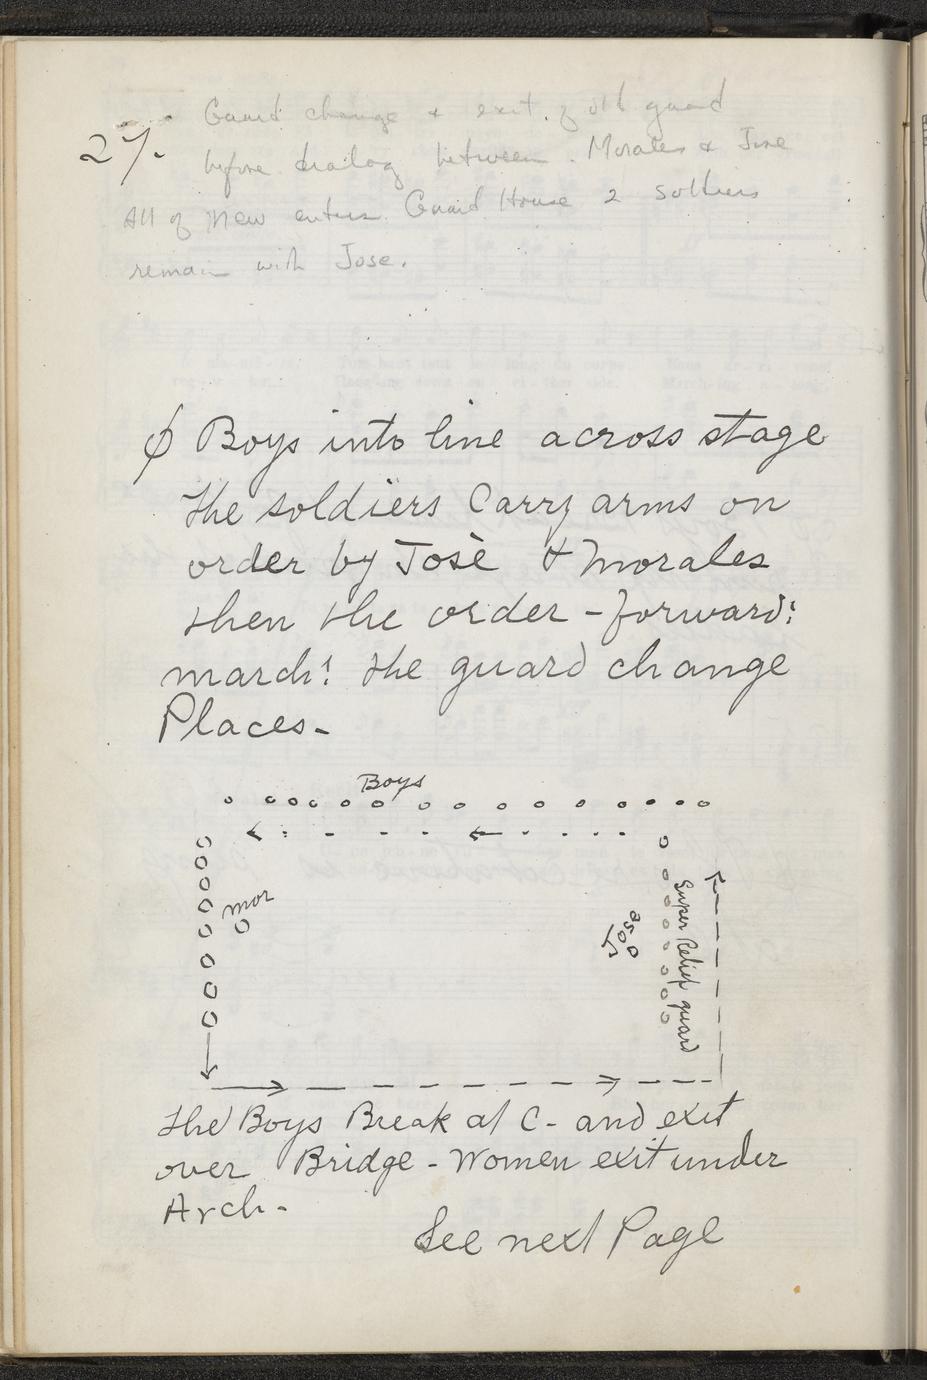 Guard change & exit of old guard
27.
before dialog between Morales & Jose
All of New enters Guard House 2 soldiers
remain with Jose.
ϕ Boys into line across stage
the soldiers Carry arms on
order by Josè & Morales
then the order - forward!
march! the guard change
Places -
Boys
mor
Jose
Super Relief guard
the Boys Break at C - and exit
over Bridge - Women exit under
Arch -
See next Page